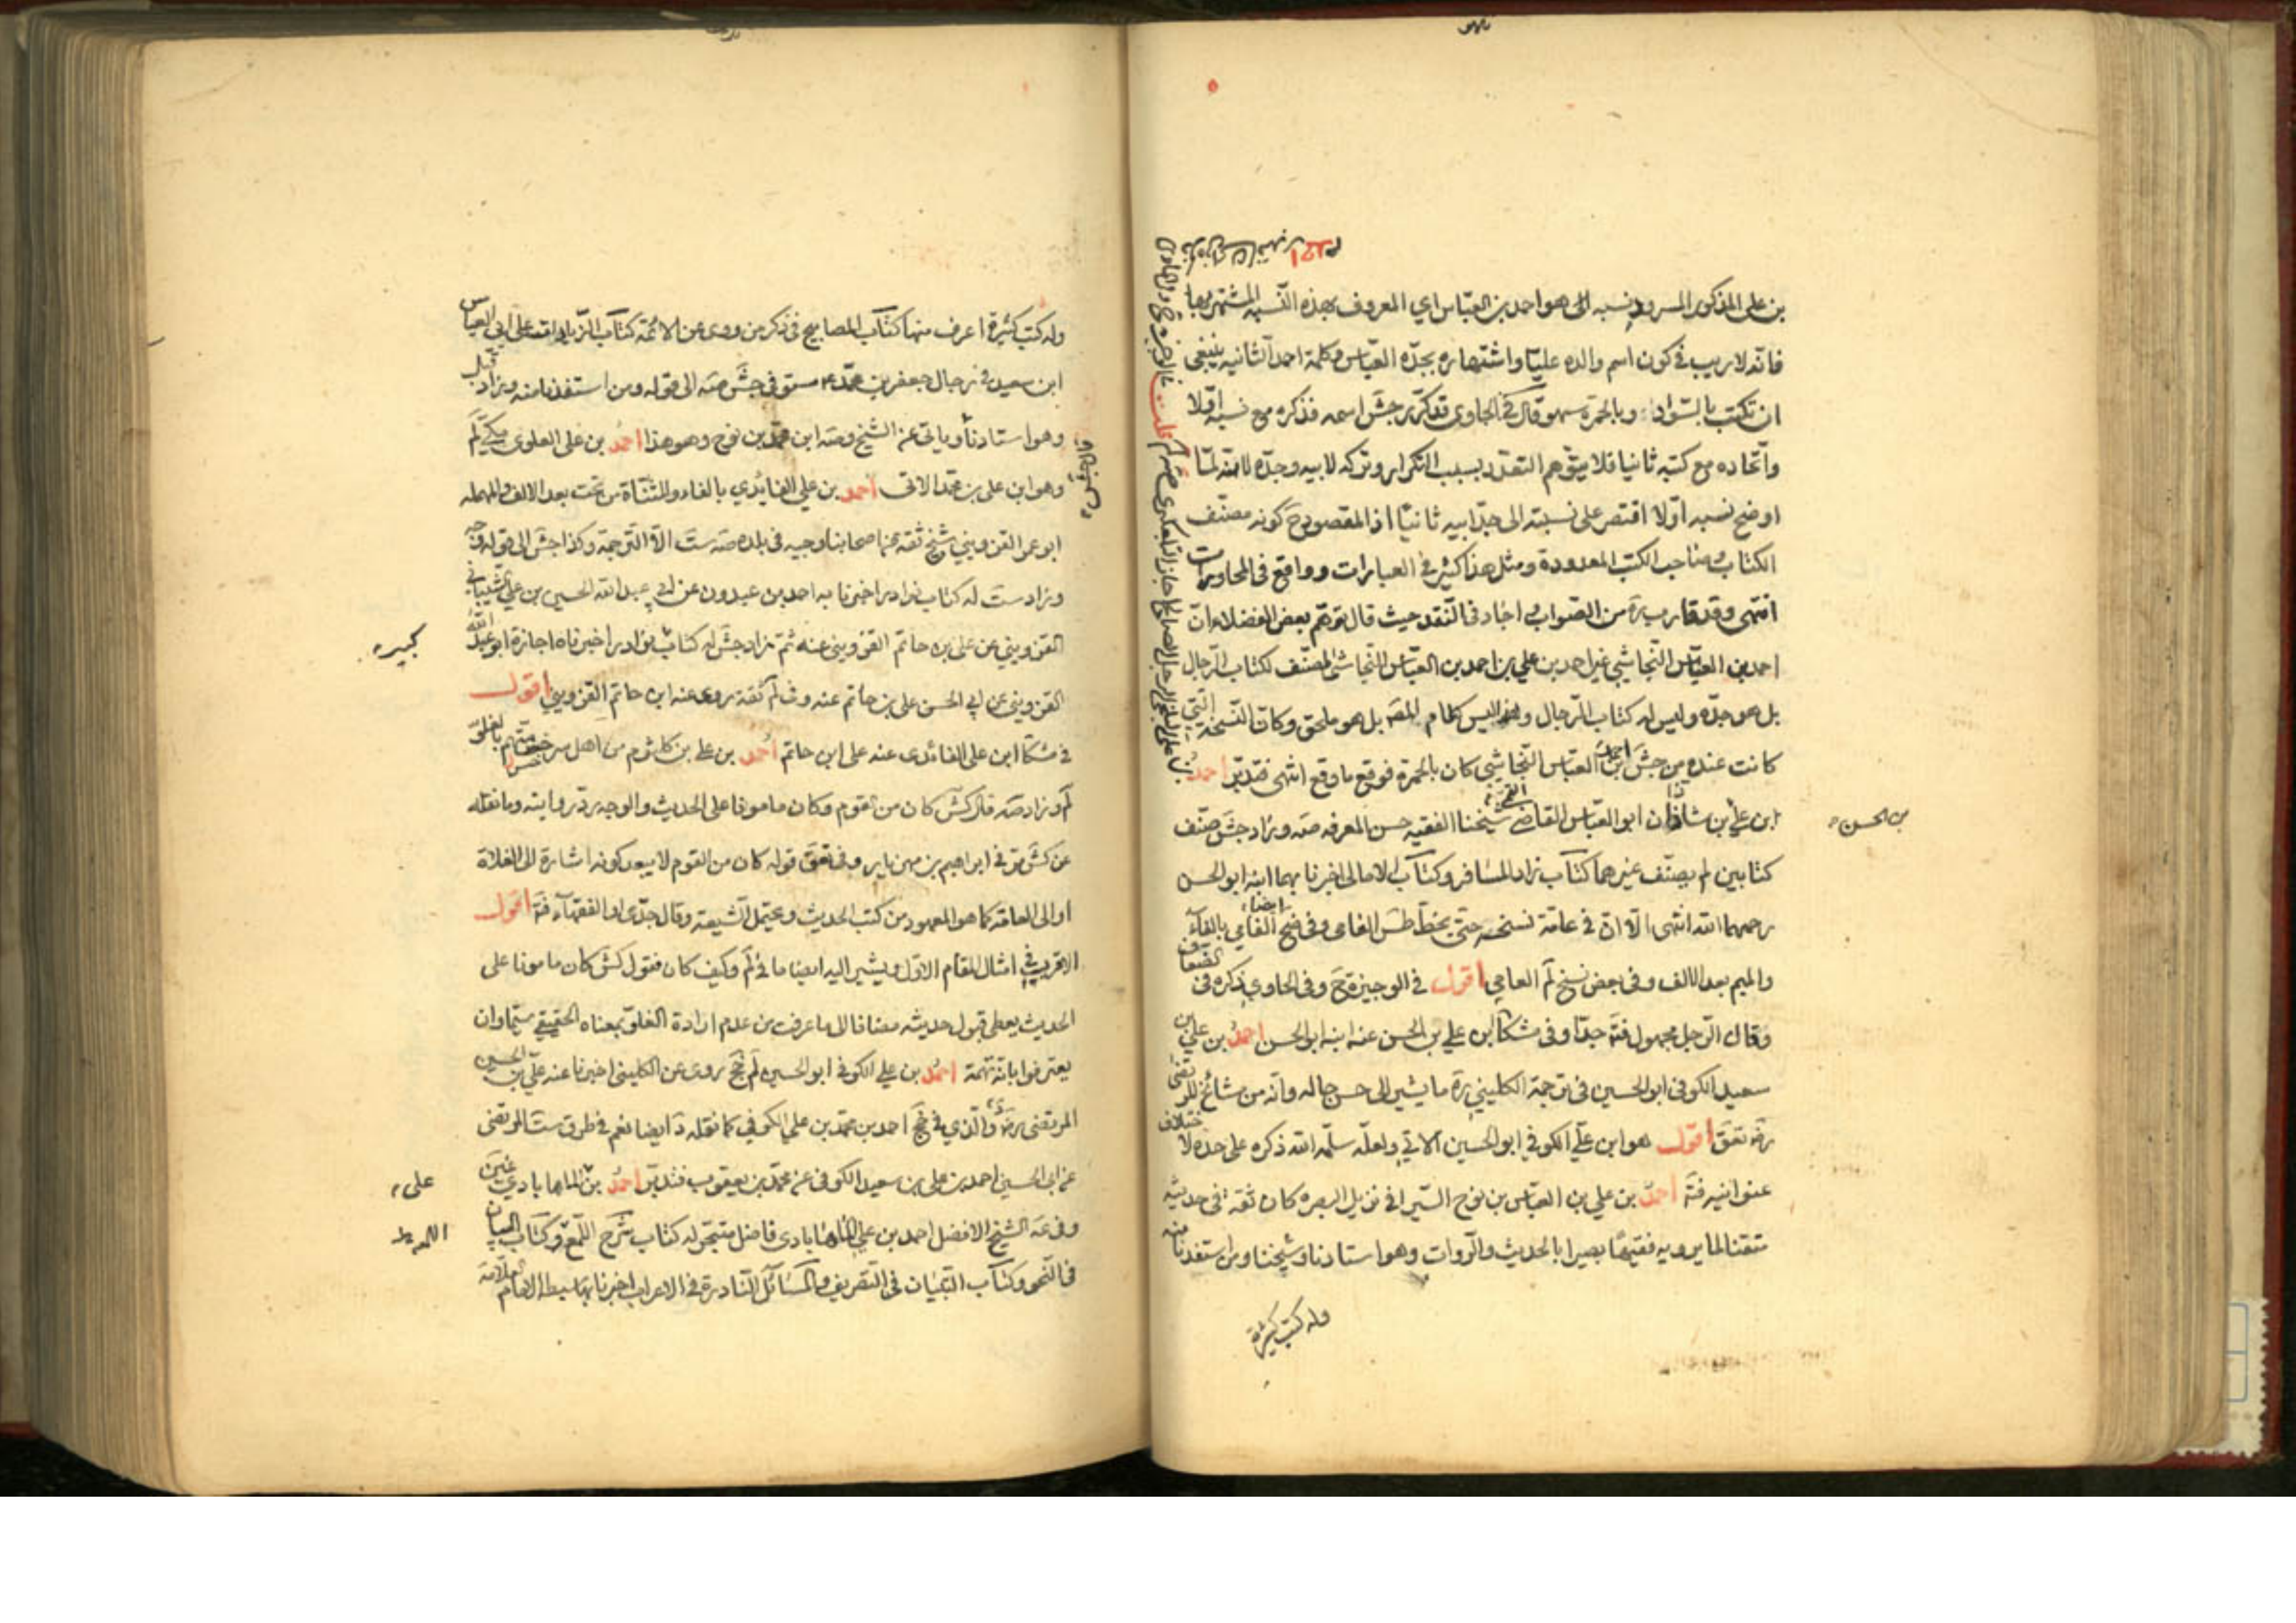 بن علي المذكور المسرود نسبه الى هو احمد بن العبّاس اي المعروف بهذه النسبه المشتهر بها
فانّه لا ريب في كون اسم والده عليّا واشتهاره بجدّه العبّاس وكلمة احمد الثانيه ينبغي
ان تكتب بالسّواد وبالحمرة سهو وقال في الحاوي قد كرّر جش اسمه فذكره مع نسبه اوّلا
واتّحاده مع كتبه ثانيا فلا يتوهّم التعدّد بسبب التكرار وتركه لابيه وجدّه لانّه لمّا
اوضح نسبه اوّلا اقتصر على نسبته الى جدّ ابيه ثانيّا اذ المقصود ح كونه مصنّف
الكتاب وصاحب الكتب المعدودة ومثل هذا كثير في العبارات وواقع في المحاورات
انتهى وقد قارب ره من الصّواب واجاد في النّقد حيث قال توهّم بعض الفضلاء انّ
احمد بن العبّاس النّجاشي غير احمد بن علي بن احمد بن العبّاس النّجاشي المصنّف لكتاب الرّجال
بل هو جدّه وليس له كتاب الرّجال وليس كلام المصّ بل هو ملحق وكان النّسخة الّتي
كانت عنده من جش احمد بن العبّاس النّجاشي كان بالحمرة فوقع ما وقع انتهى فتدبّر احمد
ابن علي بن شاذان ابو العبّاس القاضي شيخنا الفقيه حسن المعرفه صه وزاد جش صنّف
كتابين لم يصنّف غيرهما كتاب زاد المسافر وكتاب الامالي اخبرنا بهما ابنه ابو الحسن
رحمهما الله انتهى الّا انّ في عامّة نسخه حتّى بخطّ طس الفامي وفي ضح ايضا الفامي بالفاء
والميم بعد الالف وفي بعض نسخ لم العامي اقول في الوجيزة ح وفي الحاوي ذكره في الضعاف
وقال الرّجل مجهول فتدبّر وفي مشكا ابن علي بن الحسن عنه ابنه ابو الحسن احمد بن علي بن
سعيد الكوفي ابو الحسين في ترجمة الكليني ره ما يشير الى حسن حاله وانّه من مشائخ المرتضى
رضه تعق اقول هو ابن علي الكوفي ابو الحسين الاتي ولعلّه سلّمه الله ذكره على حده لاختلاف
عنوانيه فتّه احمد بن علي بن العبّاس بن نوح السّيرافي نزيل البصره كان ثقة في حديثه
متقنا لما يرويه فقيها بصيرا بالحديث والرّوات وهو استادنا وشيخنا ومن استفدنا منه
من الحسن
وله كتب كثيرة
وله كتب كثيرة اعرف منها كتاب المصابيح في ذكر من روى عن الائمّة كتاب الزّيادات على ابي العبّاس
ابن سعيد في رجال جعفر بن محمّد مستوفى جش صه الى قوله ومن استفدنا منه وزاد قبل
وهو استادنا وياتي عن الشيخ وصه ابن محمّد بن نوح وهو هذا احمد بن علي العلوي لم
وهو ابن علي بن محمّد الاتي احمد بن علي الفايدي بالفاء والمثنّاة من تحت بعد الالف والمهمله
ابو عمر القزويني شيخ ثقه من اصحابنا وجيه في بلده صه ست الّا التّرجمة وكذا جش الى قوله وجه
وزاد ست له كتاب نوادر اخبرنا به احمد بن عبدون عن ابي عبد الله الحسين بن علي الشّيباني
القزويني عن علي بن حاتم القزويني عنه ثمّ زاد جش له كتاب نوادر اخبرناه اجازة ابو عبد الله
القزويني عن ابي الحسن علي بن حاتم عنه وفي لم ثقة روى عنه ابن حاتم القزويني اقول
في مشكا ابن علي الفائدي عنه علي ابن حاتم احمد بن علي بن كلثوم من اهل سرخس متّهم بالغلوّ
لم وزاد صه قال كش كان من القوم وكان مامونا على الحديث والوجه ردّ روايته وما نقله
عن كش مرّ في ابراهيم بن مهزيار وفي تعق قوله كان من القوم لا يبعد كونه اشارة الى الغلاة
او الى العامّة كما هو المعهود من كتب الحديث ويحتمل الشيعة وقال جدّي او الفقهاء فتّه اقول
الاقرب في امثال المقام الاوّل ويشير اليه ايضا ما في لم وكيف كان فقول كش كان مامونا على
الحديث يعطي قبول حديثه مضافا الى ما عرفت من عدم ارادة الغلوّ بمعناه الحقيقي سيّما وان
يعترفوا بانّه تهمة احمد بن علي الكوفي ابو الحسين لم جخ روى عن الكليني اخبرنا عنه علي بن الحسين
المرتضى رضه والّذي في جخ احمد بن محمّد بن علي الكوفي كما نقله د ايضا نعم في طرق ست المرتضى
عن ابي الحسين احمد بن علي بن سعيد الكوفي عن محمّد بن يعقوب فتدبّر احمد بن الماهابادي
وفي عه الشيخ الافضل احمد بن علي الماهابادي فاضل متبحّر له كتاب شرح اللّمع وكتاب البيان
في النّحو وكتاب التبيان في التصريف والمسائل النّادرة في الاعراب اخبرنا بها سبطه الامام العلّامة
كبيره
علي